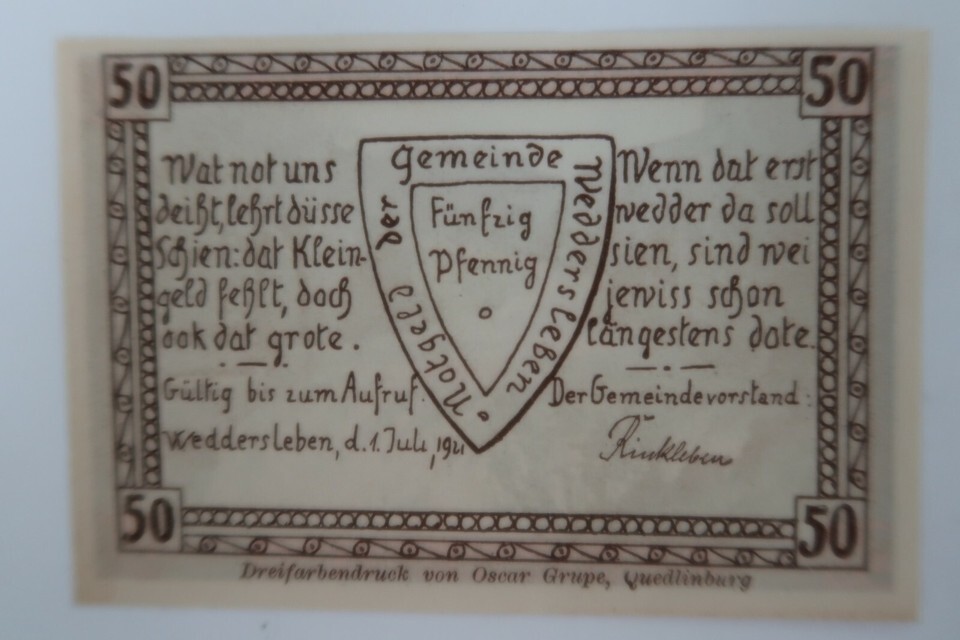 50
50
Wat not uns
deißt, lehrt düsse
Schien: dat Klein-
geld fehlt, doch
ook dat grote.
Gültig bis zum Aufruf.
Weddersleben, d. 1. Juli 1921
Notgeld der Gemeinde Weddersleben
Fünfzig
Pfennig
Wenn dat erst
wedder da soll
sien, sind wei
jewiss schon
längestens dote.
Der Gemeindevorstand:
Rinkleben
50
50
Dreifarbendruck von Oscar Grupe, Quedlinburg